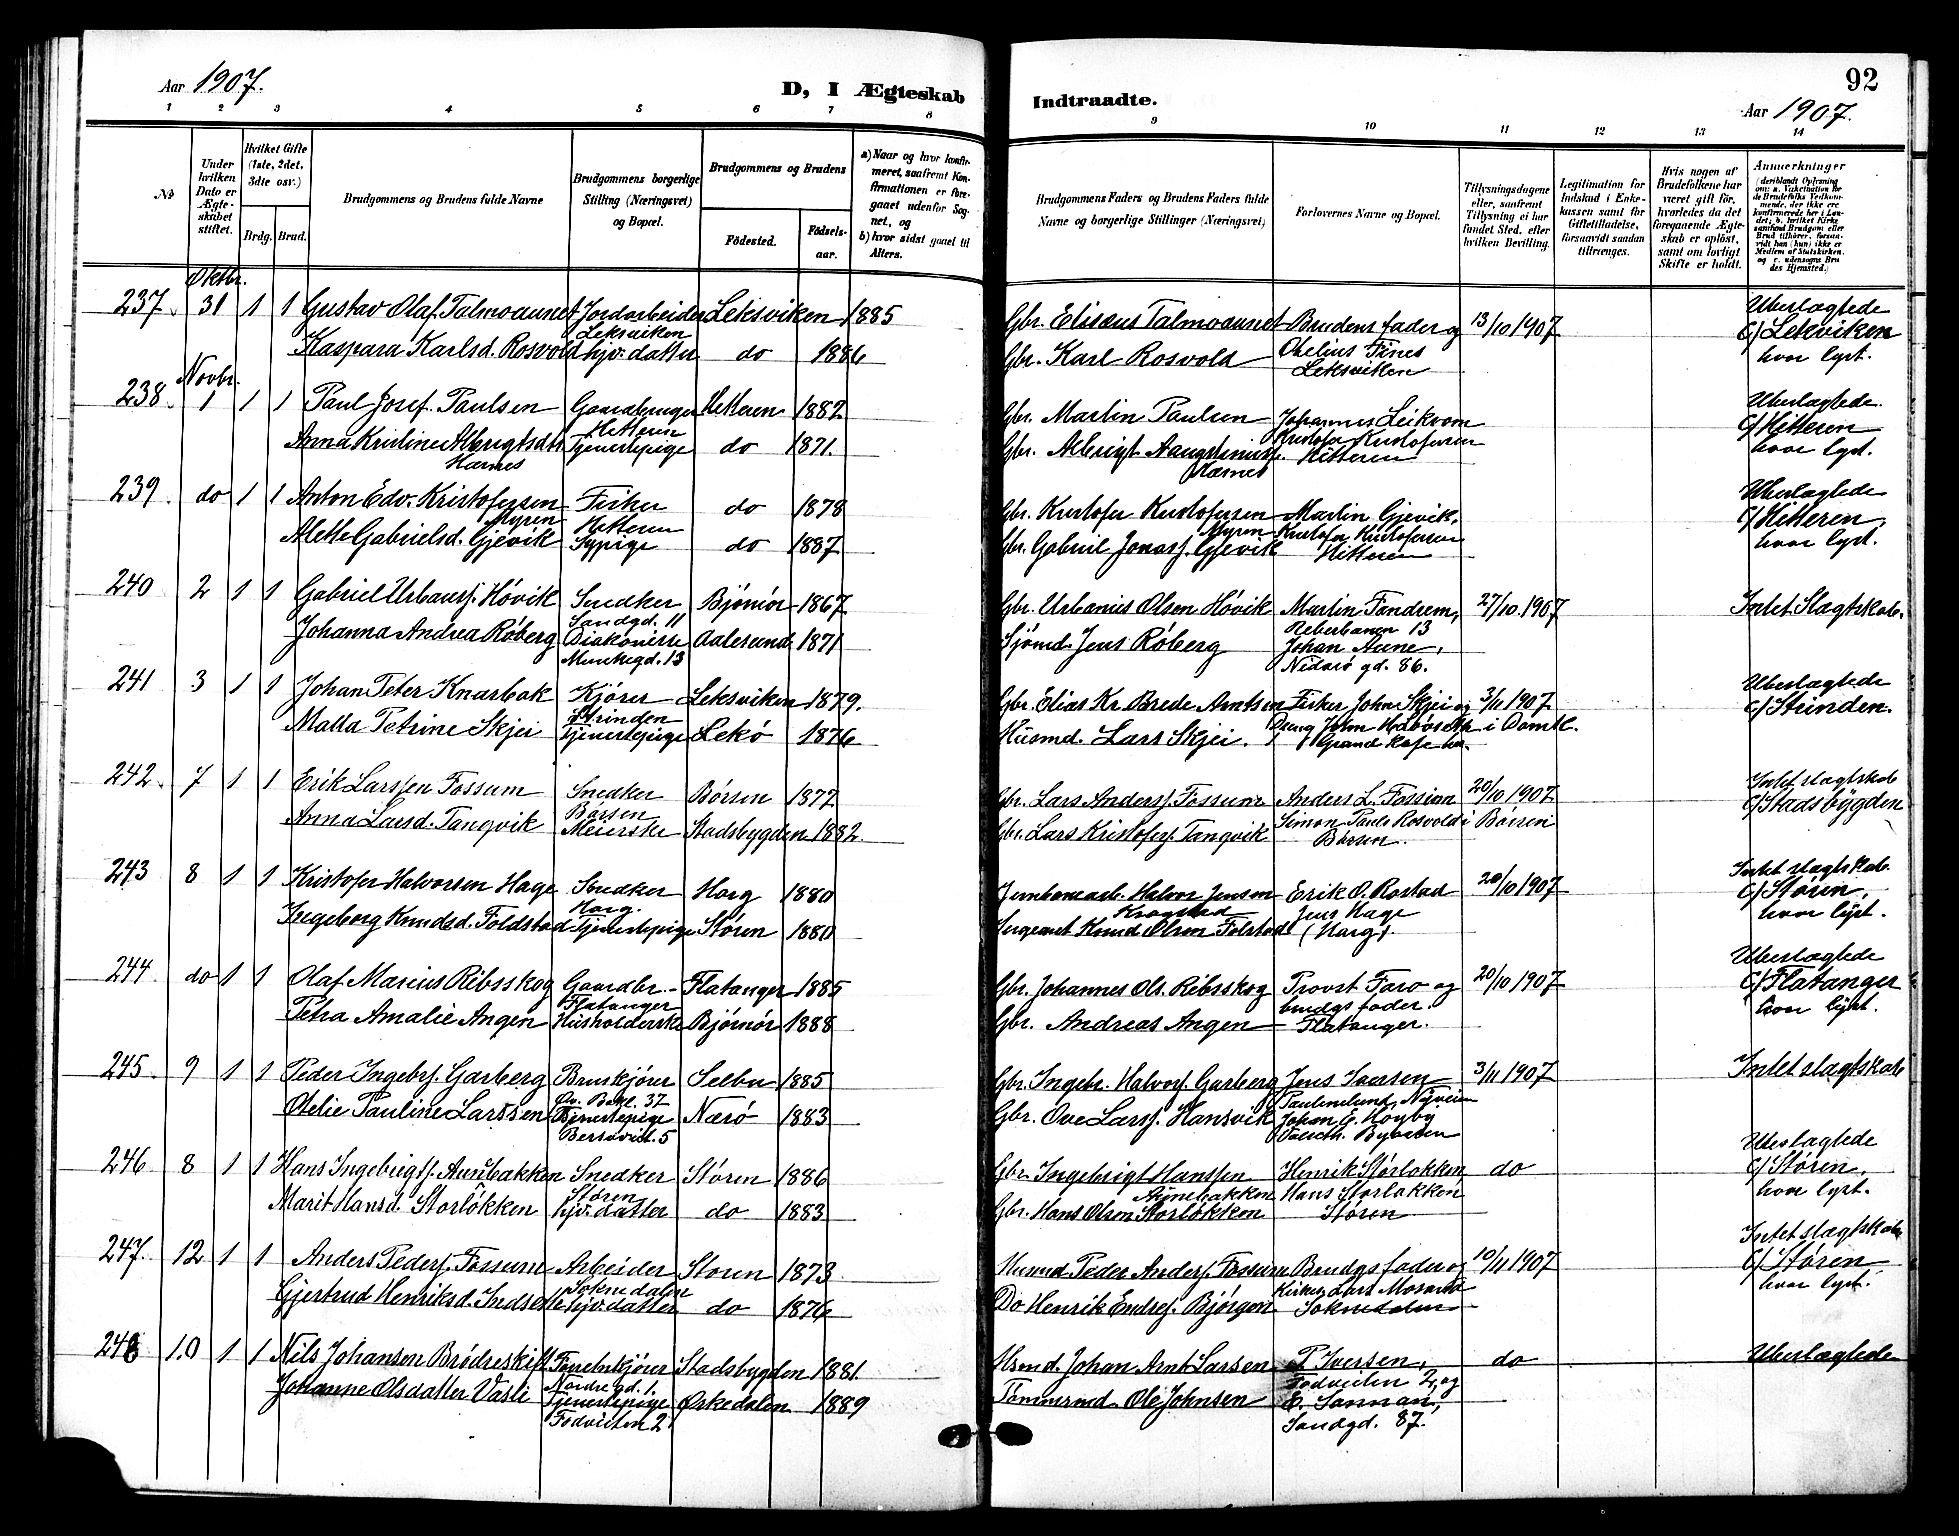 Aar 1907.
D, I Ægteskab
Indtraadte.
92
Aar 1907.
1 2 3 4 5 6 7 8
9 10 11 12 13 14
No
Under hvilken Dato er Ægteskabet stiftet.
Hvilket Gifte (1ste, 2det, 3die osv.)
Brdg. Brud.
Brudgommens og Brudens fulde Navne
Brudgommens borgerlige Stilling (Næringsvei) og Bopæl.
Brudgommens og Brudens
Fødested.
Fødselsaar.
a) Naar og hvor konfirmeret, saafremt Konfirmationen er foregaaet udenfor Sognet, og
b) hvor sidst gaaet til Alters.
Brudgommens Faders og Brudens Faders fulde Navne og borgerlige Stillinger (Næringsvei)
Forlovernes Navne og Bopæl.
Tillysningsdagene eller, saafremt Tillysning ei har fundet Sted, efter hvilken Bevilling.
Legitimation for Indskud i Enkekassen samt for Giftetilladelse, forsaavidt saadan tiltrænges.
Hvis nogen af Brudefolkene har været gift før, hvorledes da det foregaaende Ægteskab er opløst, samt om lovligt Skifte er holdt.
Anmerkninger
Oktbr.
237. 31 1 1 Gustav Olaf Talmoaunet Jordarbeider Leksviken 1885 Gbr. Elisæus Talmoaunet Brudens fader og 13/10 1907 Ubeslægtede
Leksviken Otelius Fines C/ Leksviken
Kaspara Karlsd. Rosvold hjv. datter do 1886 Gbr. Karl Rosvold Leksviken hvor lyst.
Novbr.
238. 1 1 1 Paul Josef Paulsen Gaardbruger Hitteren 1882 Gbr. Martin Paulsen Johannes Leikvam Ubeslægtede
Hitteren Kristofer Kristofersen C/ Hitteren
Anna Kristine Albrigtsdtr. Tjenestepige do 1871. Gbr. Albrigt Aaugstinius. Hitteren hvor lyst.
Hærnes Hærnes
239. do 1 1 Anton Edv. Kristofersen Fisker do 1878 Gbr. Kristofer Kristofersen Martin Gjevik, Ubeslægtede
Myren Hitteren Myren Kristofer Kristofersen C/ Hitteren,
Alette Gabrielsd. Gjevik Sypige do 1887 Gbr. Gabriel Jonass. Gjevik Hitteren hvor lyst.
240 2 1 1 Gabriel Urbanss. Høvik Snedker Bjørnør 1867 Gbr. Urbanius Olsen Høvik Martin Tandrem, 27/10 1907 Intet Slagtskab.
Sandgd. 11 Reberbanen 13
Johanna Andrea Røberg Diakonisse Aalesund 1871 Sjømd. Jens Røberg Johan Aune,
Munkegd. 13 Nidarø gd. 86.
241 3 1 1 Johan Peter Knarbak Kjører Leksviken 1879. Gbr. Elias Kr. Brede Arntsen Fisker John Skjei og 3/11 1907 Ubeslægtede
Strinden C/ Strinden.
Malla Petrine Skjei Tjenestepige Lekø 1876 Husmd. Lars Skjei. Dreng John i Domk.
Grand Kafe
242. 7 1 1 Erik Larssen Fossum Snedker Børsen 1872 Gbr. Lars Anderss. Fossum Anders L. Fossum 20/10 1907 Intet slagtskab
Børsen Simon Pauls. Rosvold i Børsen C/ Stadsbygden
Anna Larsd. Tangvik Meierske Stadsbygden 1882. Gbr. Lars Kristofers. Tangvik Børsen.
243 8 1 1 Kristofer Halvorsen Hage Snedker Horg 1880 Jernbanearb. Halvor Jensen Erik O. Rostad 20/10 1907 Intet slagtskab.
Horg. Krogstad Jens Hage C/ Støren,
Ingeborg Knudsd. Foldstad Tjenestepige Støren 1880 Sergeant Knud Olsen Folstad (Horg). hvor lyst.
244 do 1 1 Olaf Marius Ribsskog Gaardbr. Flatanger 1885 Gbr. Johannes Ols. Ribsskog Provst Faro og 20/10 1907 Ubeslægtede
Flatanger brudgs fader. C/ Flatanger
Petra Amalie Angen Husholderske Bjørnør 1888 Gbr. Andreas Angen Flatanger. hvor lyst.
245. 9 1 1 Peder Ingebr. Garberg Bruskjører Selbu 1885 Gbr. Ingebr. Halvors. Garberg Jens Iversen 3/11 1907 Intet slagtskab
Øv. Bakl. 37 Paulinelund, Nyveien
Otelie Pauline Larssen Tjenestepige Nærø 1883 Gbr. Ove Larss. Hansvik Johan E. Høyby
Bersvdt. 5 Byaasen
246 8 1 1 Hans Ingebrigts. Aunebakken Snedker Støren 1886 Gbr. Ingebrigt Hanssen Henrik Storløkken, do Ubeslagtede
Støren Aunebakken Hans Storløkken C/ Støren,
Marit Hansd. Storløkken hjv. datter do 1883 Gbr. Hans Olsen Storløkken Støren hvor lyst.
247. 12 1 1 Anders Peders. Fossum Arbeider Støren 1873 Husmd Peder Anders. Fossum Brudgs fader og 10/11 1907 Intet slagtskab
Soknedalen Kirkes. Lars C/ Støren
Gjertrud Henriksd. Indsette hjv. datter do 1876 Do Henrik Endres. Bjørgen Soknedalen hvor lyst.
248 10 1 1 Nils Johansen Brødreskift Fanebukjører Stadsbygden 1881. Hsmd. Johan Arnt Larsen P. Iversen, do Ubeslægtede
Nordre gd. 1, Fodveiten 2, og
Johanne Olsdatter Vasli Tjenestepige Ørkedalen 1889 Tømmermd. Ole Johnsen E. Sannan,
Fodveiten 2 Sandgd. 87.